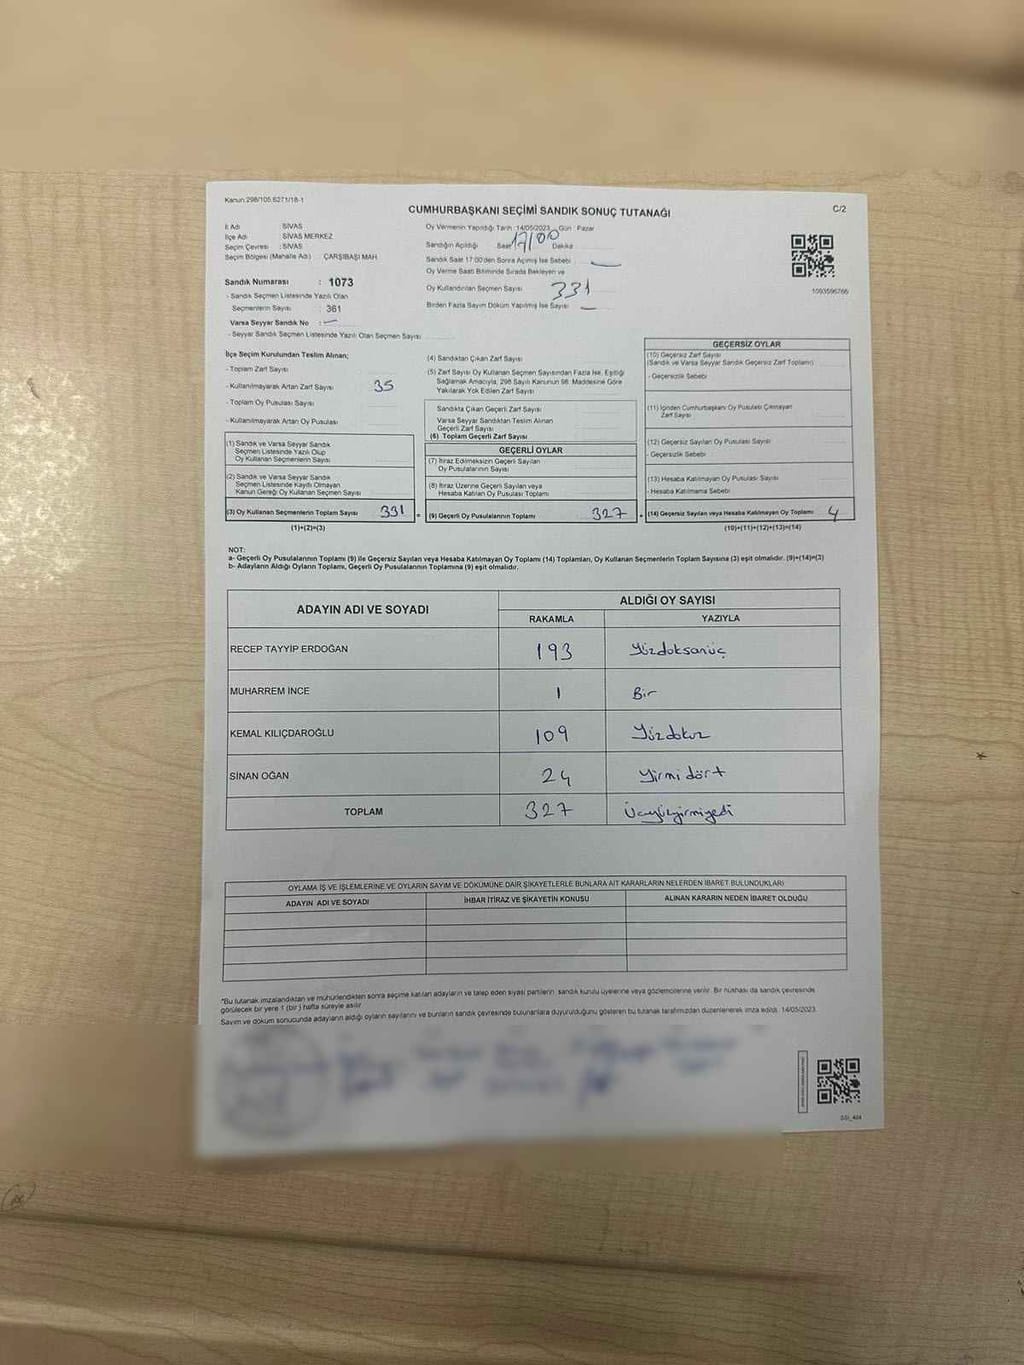 Kanun:298/105,6271/18-1
CUMHURBAŞKANI SEÇİMİ SANDIK SONUÇ TUTANAĞI
C/2
İl Adı : SİVAS
İlçe Adı : SİVAS MERKEZ
Seçim Çevresi : SİVAS
Seçim Bölgesi (Mahalle Adı) : ÇARŞIBAŞI MAH.
Oy Vermenin Yapıldığı Tarih : 14/05/2023 Gün : Pazar
Sandığın Açıldığı Saat 17/00 Dakika
Sandık Saat 17:00'den Sonra Açılmış İse Sebebi
Oy Verme Saati Bitiminde Sırada Bekleyen ve
Oy Kullandırılan Seçmen Sayısı 331
Birden Fazla Sayım Döküm Yapılmış İse Sayısı
1093596766
Sandık Numarası : 1073
- Sandık Seçmen Listesinde Yazılı Olan
Seçmenlerin Sayısı : 361
Varsa Seyyar Sandık No :
- Seyyar Sandık Seçmen Listesinde Yazılı Olan Seçmen Sayısı
İlçe Seçim Kurulundan Teslim Alınan;
- Toplam Zarf Sayısı
- Kullanılmayarak Artan Zarf Sayısı 35
- Toplam Oy Pusulası Sayısı
- Kullanılmayarak Artan Oy Pusulası
(1) Sandık ve Varsa Seyyar Sandık
Seçmen Listesinde Yazılı Olup
Oy Kullanan Seçmenlerin Sayısı
(2) Sandık ve Varsa Seyyar Sandık
Seçmen Listesinde Kayıtlı Olmayan
Kanun Gereği Oy Kullanan Seçmen Sayısı
(3) Oy Kullanan Seçmenlerin Toplam Sayısı 331
(1)+(2)=(3)
(4) Sandıktan Çıkan Zarf Sayısı
(5) Zarf Sayısı Oy Kullanan Seçmen Sayısından Fazla İse, Eşitliği
Sağlamak Amacıyla, 298 Sayılı Kanunun 98. Maddesine Göre
Yakılarak Yok Edilen Zarf Sayısı
Sandıkta Çıkan Geçerli Zarf Sayısı
Varsa Seyyar Sandıktan Teslim Alınan
Geçerli Zarf Sayısı
(6) Toplam Geçerli Zarf Sayısı
GEÇERLİ OYLAR
(7) İtiraz Edilmeksizin Geçerli Sayılan
Oy Pusulalarının Sayısı
(8) İtiraz Üzerine Geçerli Sayılan veya
Hesaba Katılan Oy Pusulası Toplamı
= (9) Geçerli Oy Pusulalarının Toplamı 327
GEÇERSİZ OYLAR
(10) Geçersiz Zarf Sayısı
(Sandık ve Varsa Seyyar Sandık Geçersiz Zarf Toplamı)
- Geçersizlik Sebebi
(11) İçinden Cumhurbaşkanı Oy Pusulası Çıkmayan
Zarf Sayısı
(12) Geçersiz Sayılan Oy Pusulası Sayısı
- Geçersizlik Sebebi
(13) Hesaba Katılmayan Oy Pusulası Sayısı
- Hesaba Katılmama Sebebi
+ (14) Geçersiz Sayılan veya Hesaba Katılmayan Oy Toplamı 4
(10)+(11)+(12)+(13)=(14)
NOT:
a- Geçerli Oy Pusulalarının Toplamı (9) ile Geçersiz Sayılan veya Hesaba Katılmayan Oy Toplamı (14) Toplamları, Oy Kullanan Seçmenlerin Toplam Sayısına (3) eşit olmalıdır. (9)+(14)=(3)
b- Adayların Aldığı Oyların Toplamı, Geçerli Oy Pusulalarının Toplamına (9) eşit olmalıdır.
ADAYIN ADI VE SOYADI
ALDIĞI OY SAYISI
RAKAMLA YAZIYLA
RECEP TAYYİP ERDOĞAN 193 Yüzdoksanüç
MUHARREM İNCE 1 Bir
KEMAL KILIÇDAROĞLU 109 Yüzdokuz
SİNAN OĞAN 24 Yirmi dört
TOPLAM 327 Üçyüzyirmiyedi
OYLAMA İŞ VE İŞLEMLERİNE VE OYLARIN SAYIM VE DÖKÜMÜNE DAİR ŞİKAYETLERLE BUNLARA AİT KARARLARIN NELERDEN İBARET BULUNDUKLARI
ADAYIN ADI VE SOYADI İHBAR İTİRAZ VE ŞİKAYETİN KONUSU ALINAN KARARIN NEDEN İBARET OLDUĞU
*Bu tutanak imzalandıktan ve mühürlendikten sonra seçime katılan adayların ve talep eden siyasi partilerin sandık kurulu üyelerine veya gözlemcilerine verilir. Bir nüshası da sandık çevresinde
görülecek bir yere 1 (bir) hafta süreyle asılır.
Sayım ve döküm sonucunda adayların aldığı oyların sayılarını ve bunların sandık çevresinde bulunanlara duyurulduğunu gösteren bu tutanak tarafımızdan düzenlenerek imza edildi. 14/05/2023